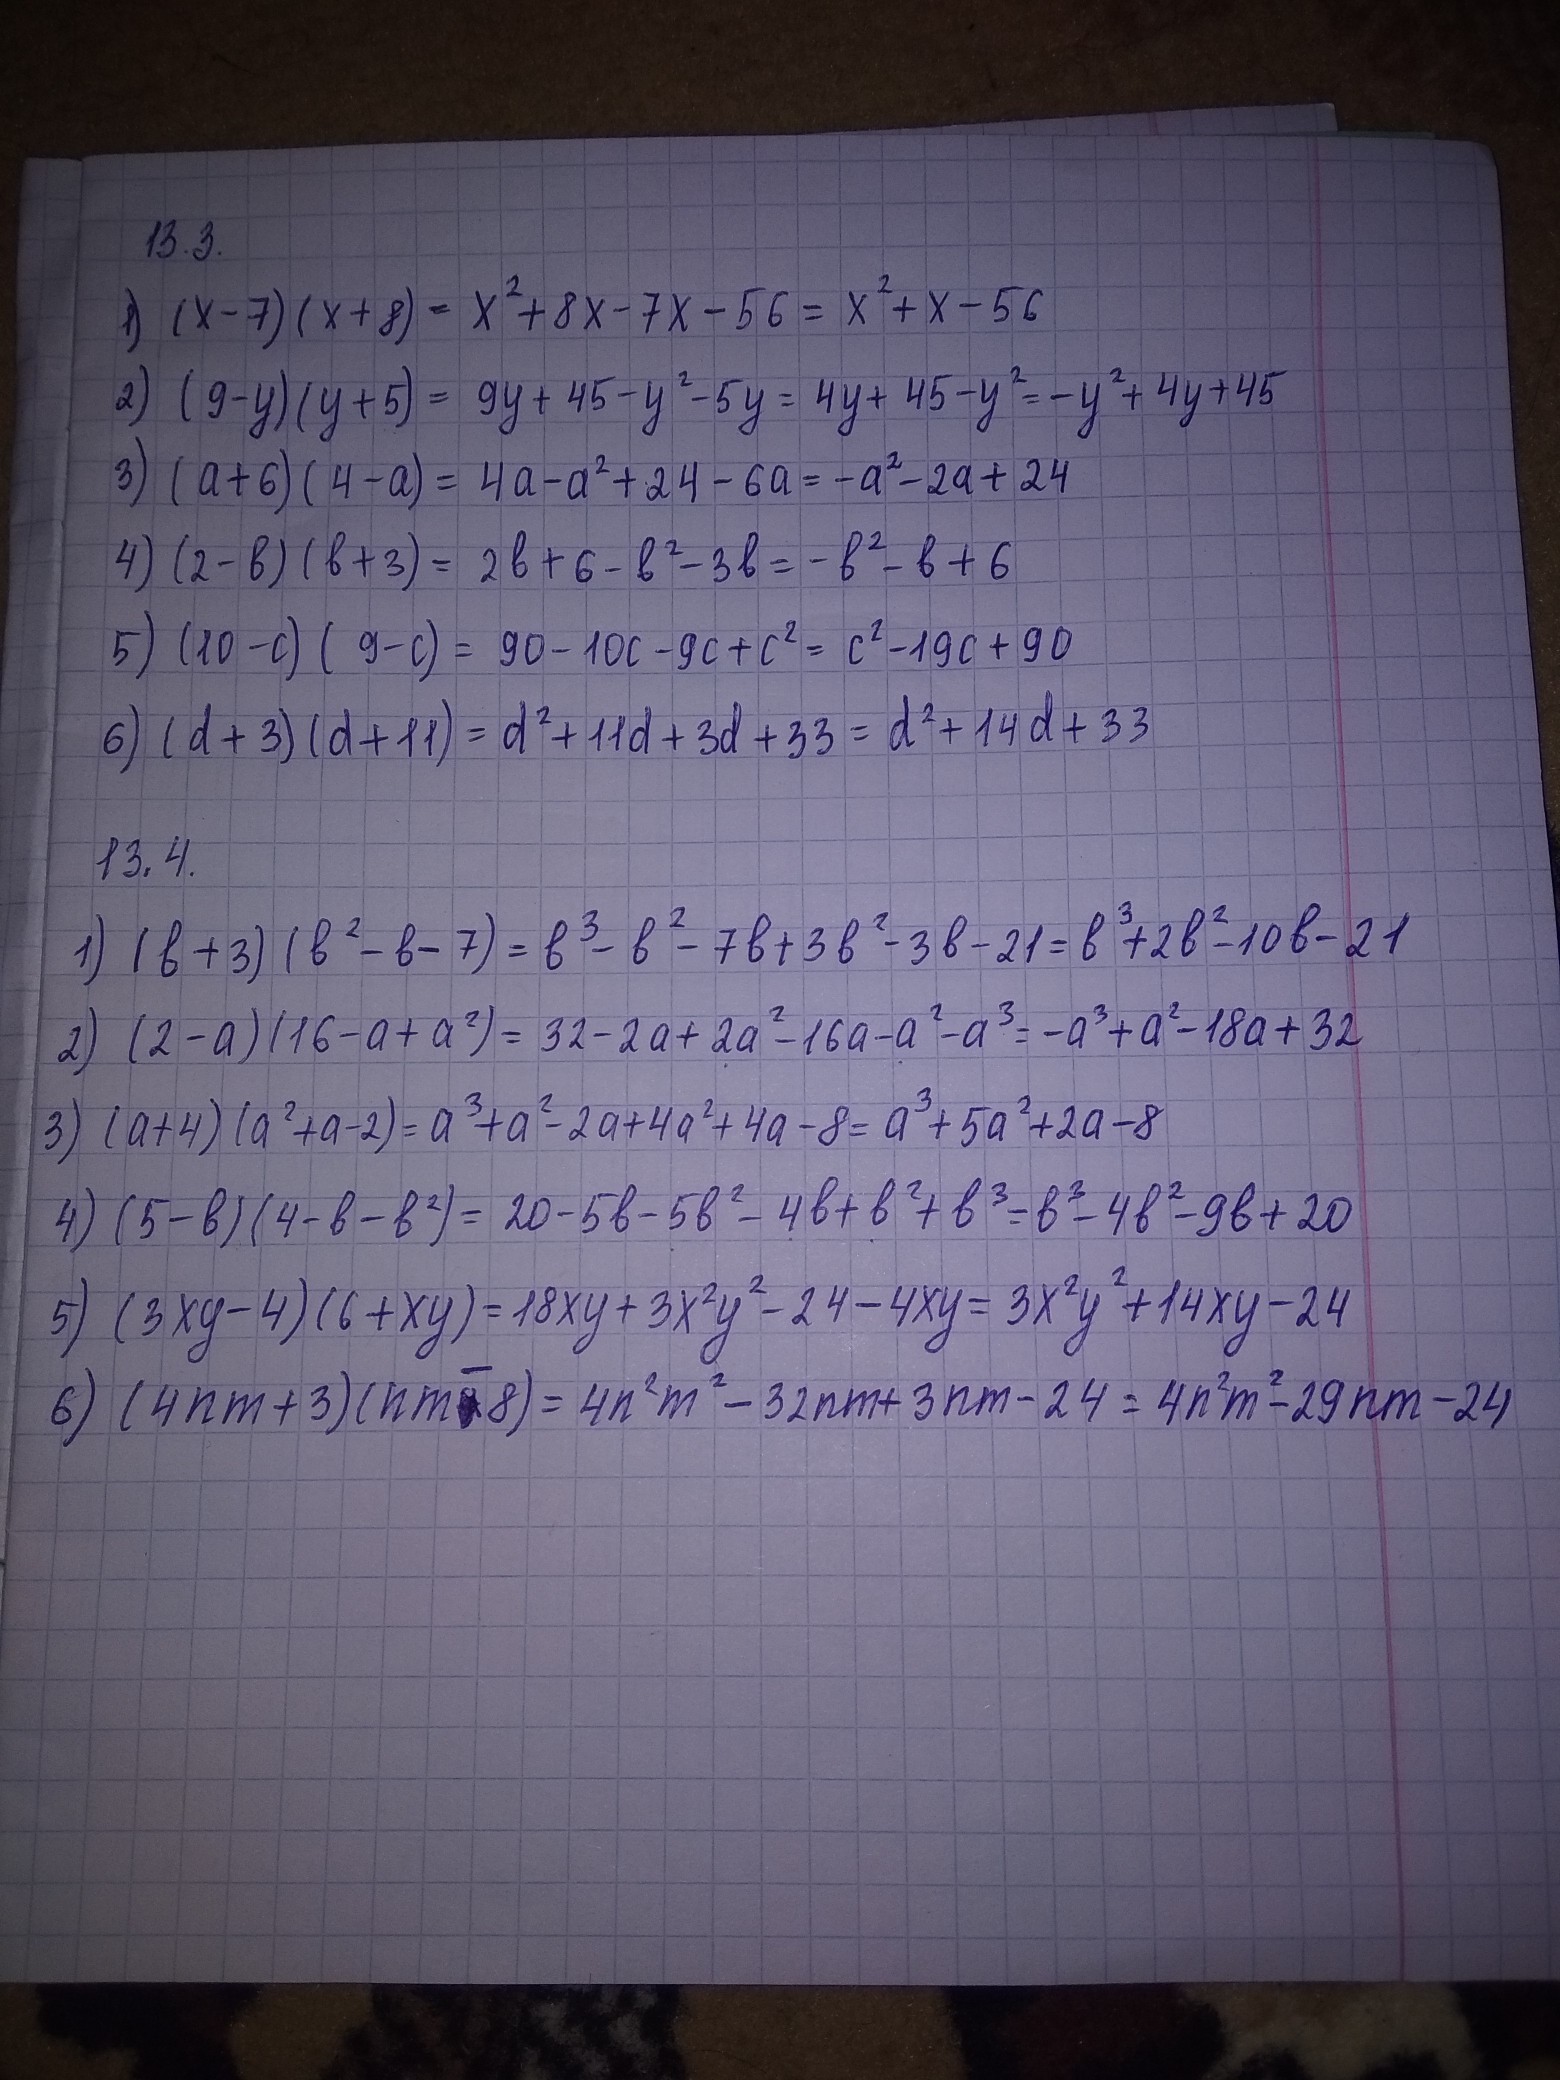 13.3.
1) (x-7)(x+8) = x²+8x-7x-56 = x²+x-56
2) (9-y)(y+5) = 9y+45-y²-5y = 4y+45-y² = -y²+4y+45
3) (a+6)(4-a) = 4a-a²+24-6a = -a²-2a+24
4) (2-в)(в+3) = 2в+6-в²-3в = -в²-в+6
5) (10-c)(9-c) = 90-10c-9c+c² = c²-19c+90
6) (d+3)(d+11) = d²+11d+3d+33 = d²+14d+33
13.4.
1) (в+3)(в²-в-7) = в³-в²-7в+3в²-3в-21 = в³+2в²-10в-21
2) (2-a)(16-a+a²) = 32-2a+2a²-16a-a²-a³ = -a³+a²-18a+32
3) (a+4)(a²+a-2) = a³+a²-2a+4a²+4a-8 = a³+5a²+2a-8
4) (5-в)(4-в-в²) = 20-5в-5в²-4в+в²+в³ = в³-4в²-9в+20
5) (3xy-4)(6+xy) = 18xy+3x²y²-24-4xy = 3x²y²+14xy-24
6) (4nm+3)(nm-8) = 4n²m²-32nm+3nm-24 = 4n²m²-29nm-24